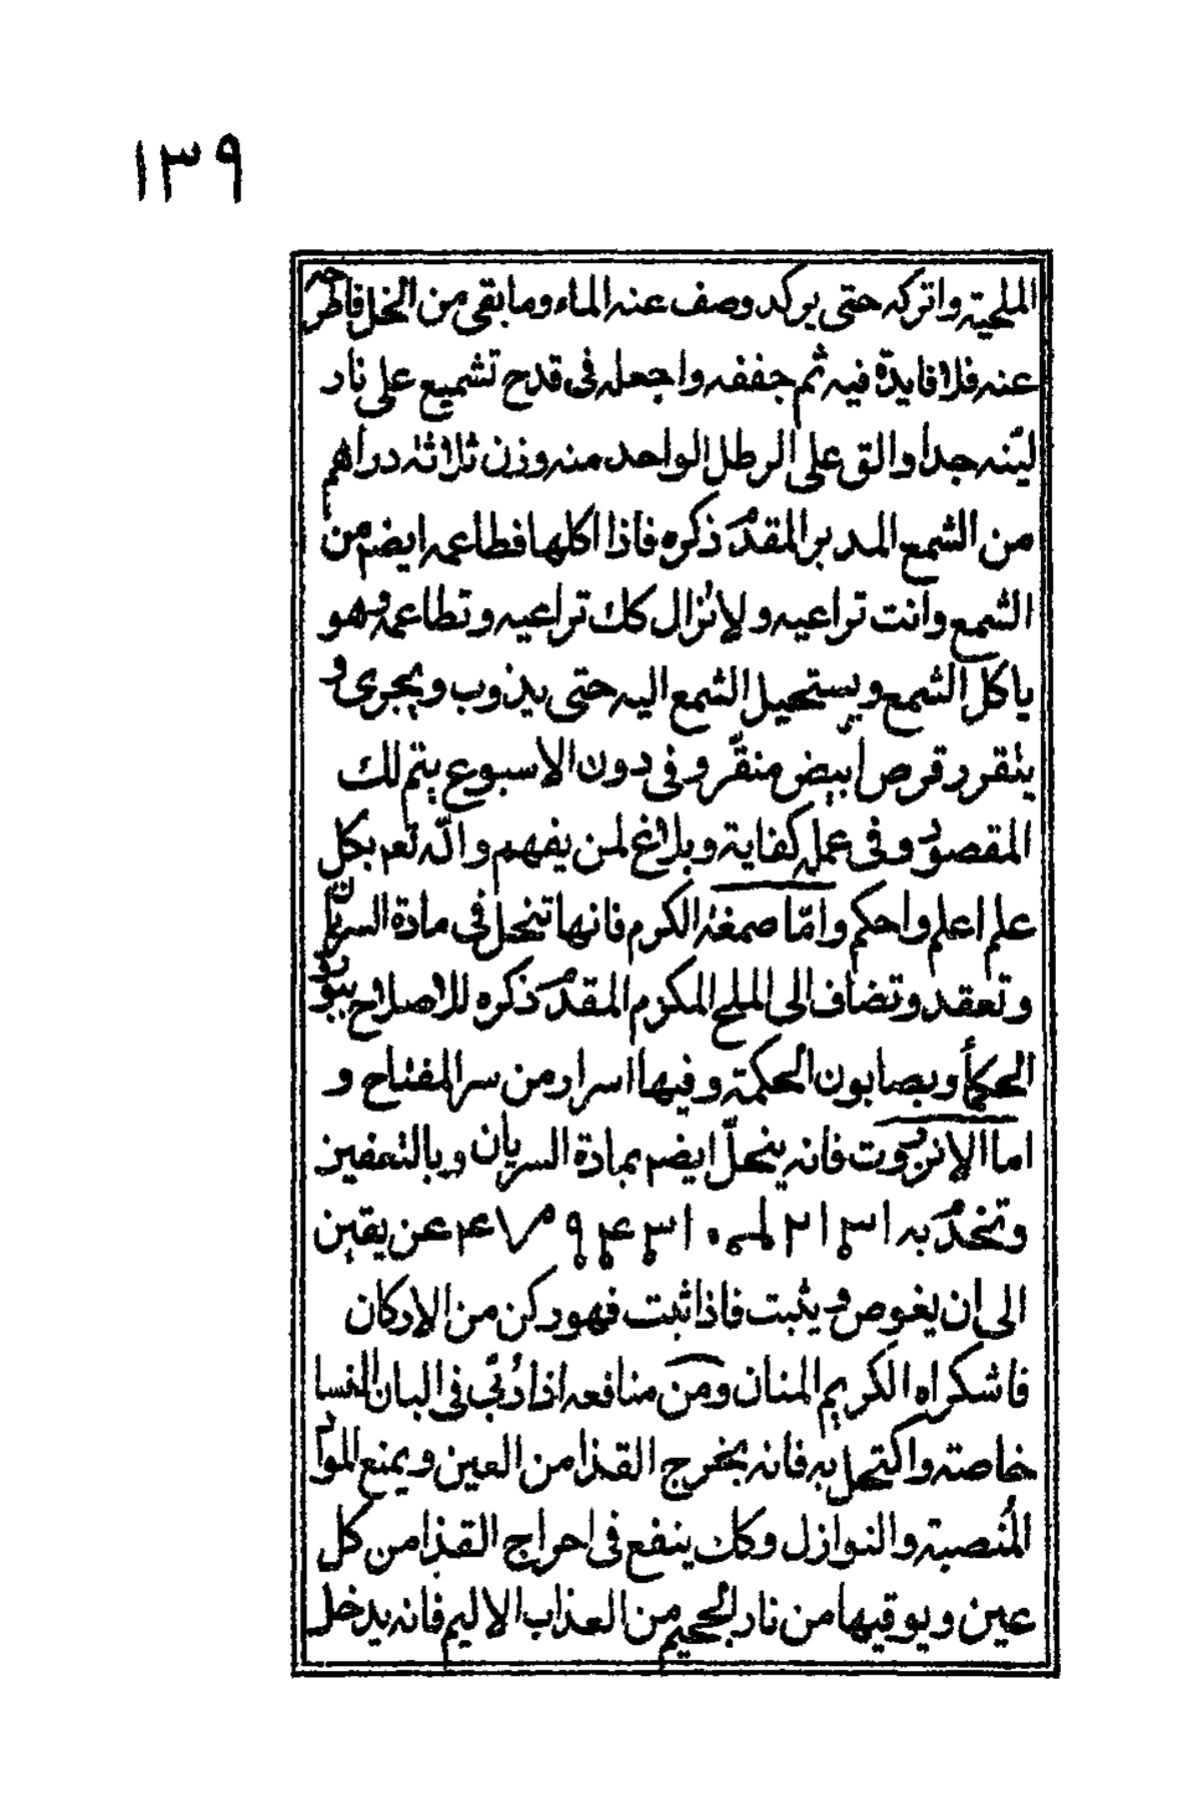 ١٣٩
الملحية واتركه حتى يركد وصف عنه الماء وما بقى من الخل فاطرح
عنه فلا فايدة فيه ثم جففه واجعله فى قدح تشميع على نار
لينه جدا والق على الرطل الواحد منه وزن ثلاثة دراهم
من الشمع المدبر المقدم ذكره فاذا اكلها فطاعمه ايضم من
الشمع وانت تراعيه ولا تزال كك تراعيه وتطاعمه وهو
ياكل الشمع ويستحيل الشمع اليه حتى يذوب ويجرى و
يتقرر قرص ابيض منقّر وفى دون الاسبوع يتم لك
المقصود وفى عمله كفاية وبلاغ لمن يفهم والله تعم بكل
علم اعلم واحكم وامّا صمغة الكرم فانها تنحل فى مادة السريان
وتعقد وتضاف الى الملح المكرم المقدم ذكره للاصلاح ببورق
الحكمأ وبصابون الحكمة وفيها اسرار من سر المفتاح و
اما الانزروت فانه ينحلّ ايضم بمادة السريان وبالتعفين
وتخدم به عن يقين
الى ان يغوص ويثبت فاذا ثبت فهو ركن من الاركان
فاشكر اله الكريم المنان ومن منافعه اذا رُبّب فى البان النسا
خاصته واكتحل به فانه يخرج القذا من العين ويمنع المواد
المُنصبة والنوازل وكك ينفع فى احراج القذا من كل
عين ويوقيها من نار الجحيم من العذاب الاليم فانه يدخل